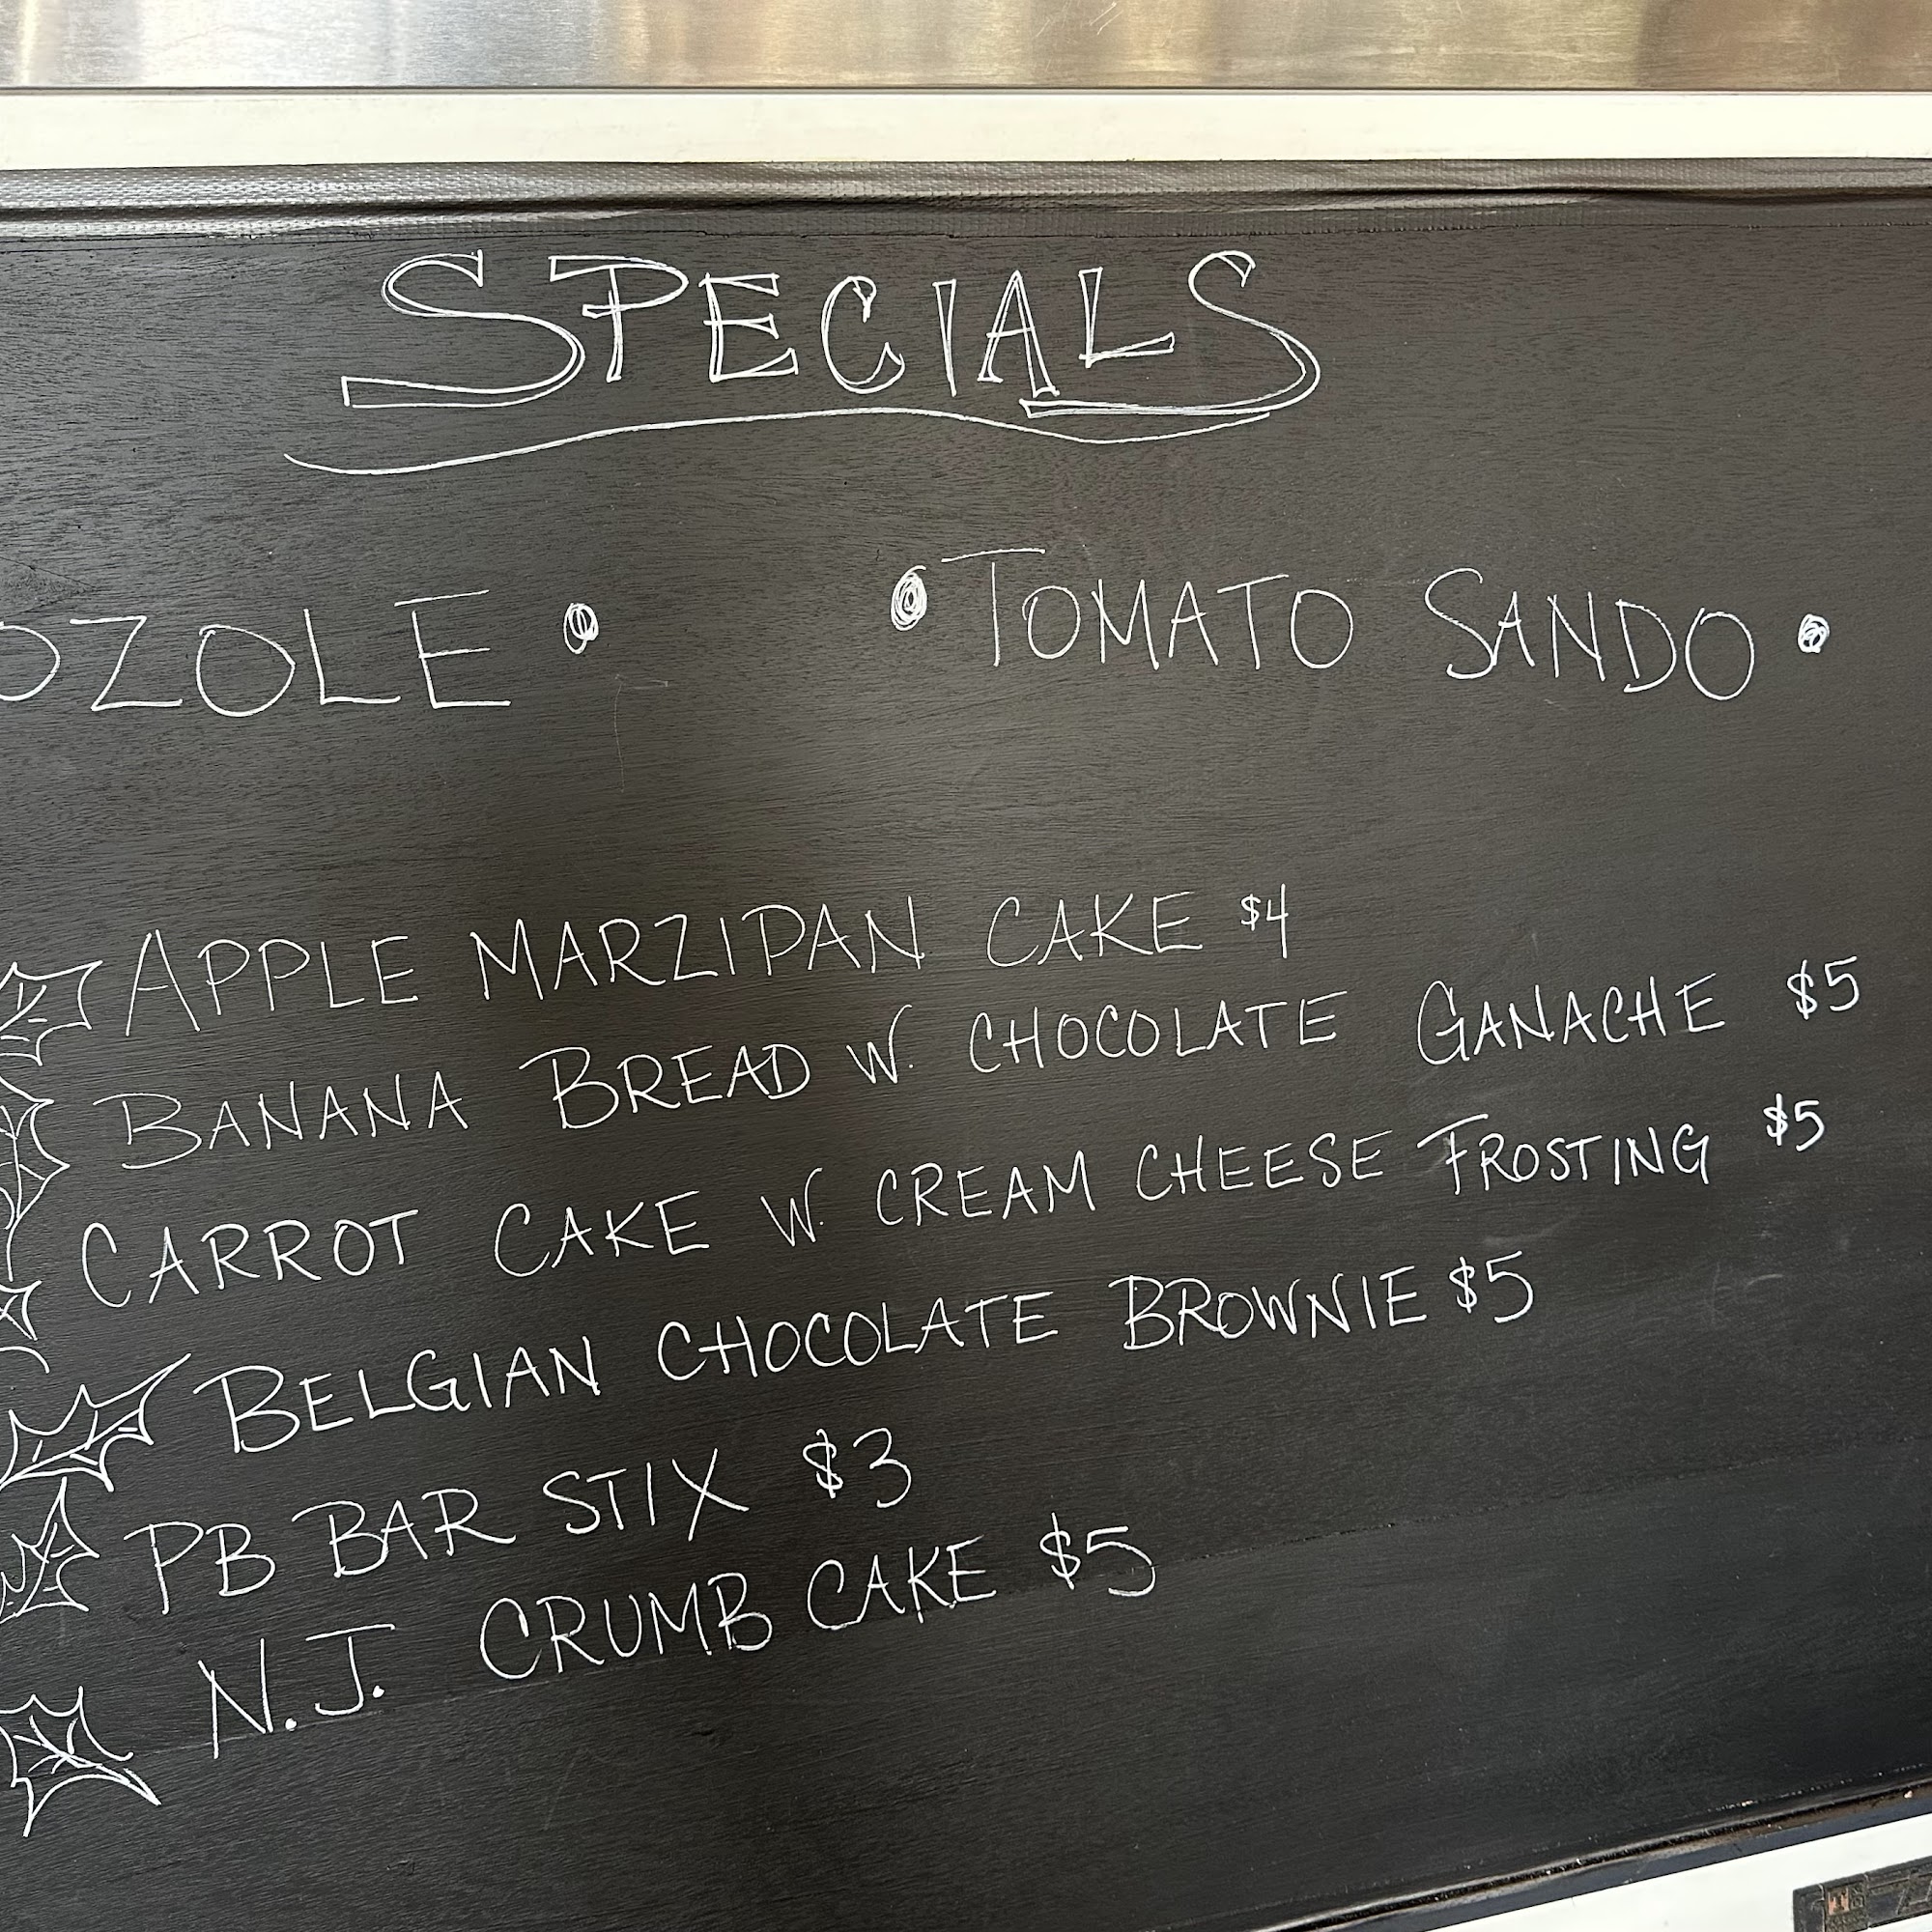 SPECIALS
OZOLE • • TOMATO SANDO •
APPLE MARZIPAN CAKE $4
BANANA BREAD W. CHOCOLATE GANACHE $5
CARROT CAKE W. CREAM CHEESE FROSTING $5
BELGIAN CHOCOLATE BROWNIE $5
PB BAR STIX $3
N.J. CRUMB CAKE $5